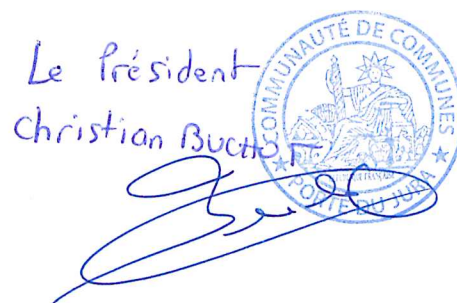 Le Président
Christian BUCHOT
COMMUNAUTÉ DE COMMUNES
PORTE DU JURA